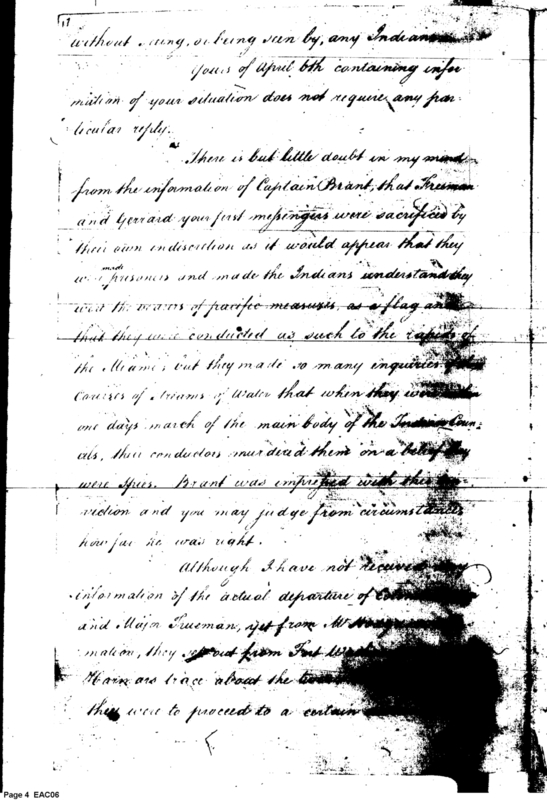 17
without seeing, or being seen by, any Indians
Yours of April 6th containing infor
mation of your situation does not require any par-
ticular reply.
There is but little doubt in my mind
from the information of Captain Brant, that Freeman
and Gerrard your first messengers were sacrificed by
their own indiscretion as it would appear that they
were made prisoners and made the Indians understand they
were the bearers of pacific measures, as a flag and
that they were conducted as such to the rapids of
the Miamei but they made so many enquiries of the
Courses of Streams of Water that when they were within
one days march of the main body of the Indian Coun-
cils, their conductors murdered them on a belief they
were spies. Brant was impressed with this con
viction and you may judge from circumstances
how far he was right.
Although I have not received any
information of the actual departure of Colonel
and Major Trueman, yet from Mr
mation, they set out from Fort
Harmars trace about the
they were to proceed to a certain
Page 4 EAC06